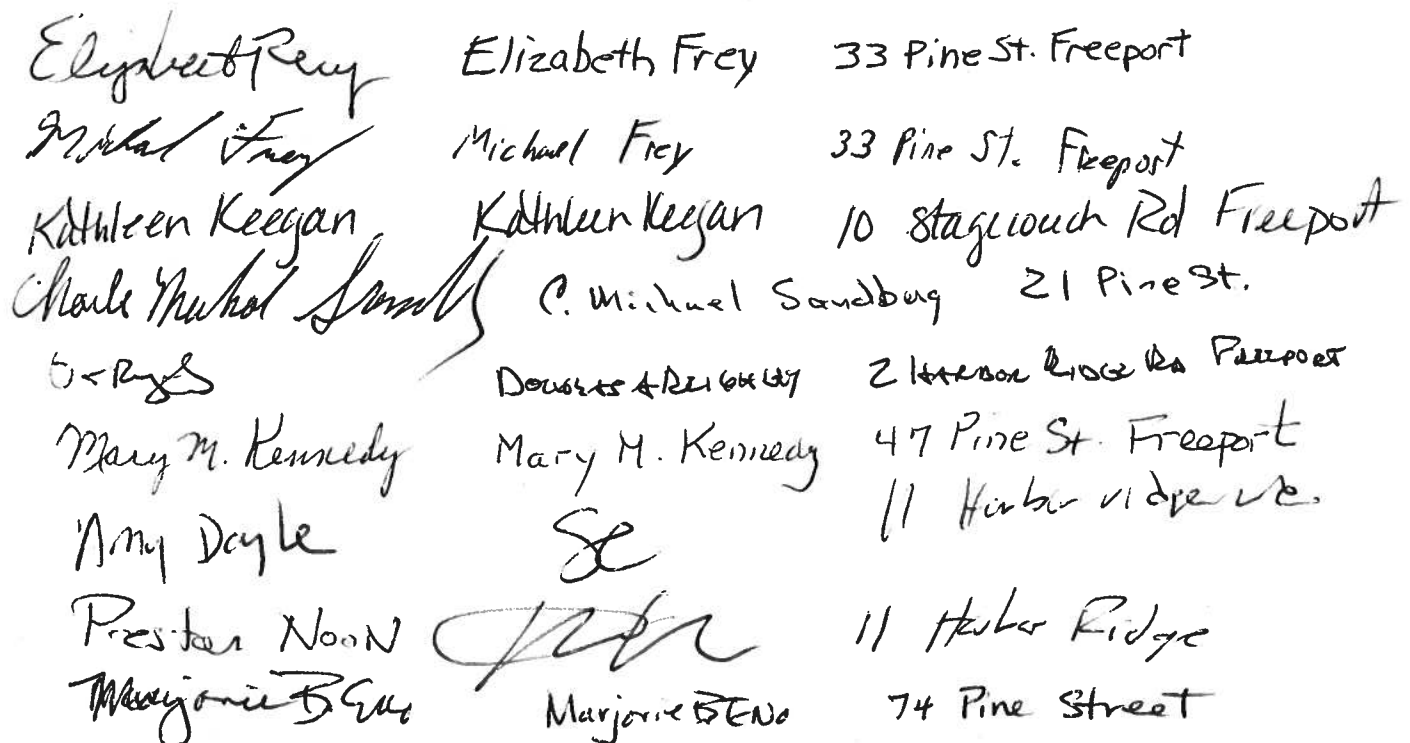 Elizabeth Frey Elizabeth Frey 33 Pine St. Freeport
Michael Frey Michael Frey 33 Pine St. Freeport
Kathleen Keegan Kathleen Keegan 10 Stagecouch Rd Freeport
Charle Michal C. Michael Sandburg 21 Pine St.
2 HARBOR RIDGE RD FREEPORT
Mary M. Kennedy Mary M. Kennedy 47 Pine St. Freeport
Amy Doyle 11 Harbor ridge
Preston NooN 11 Harbor Ridge
Marjorie B Eno Marjorie B ENo 74 Pine Street